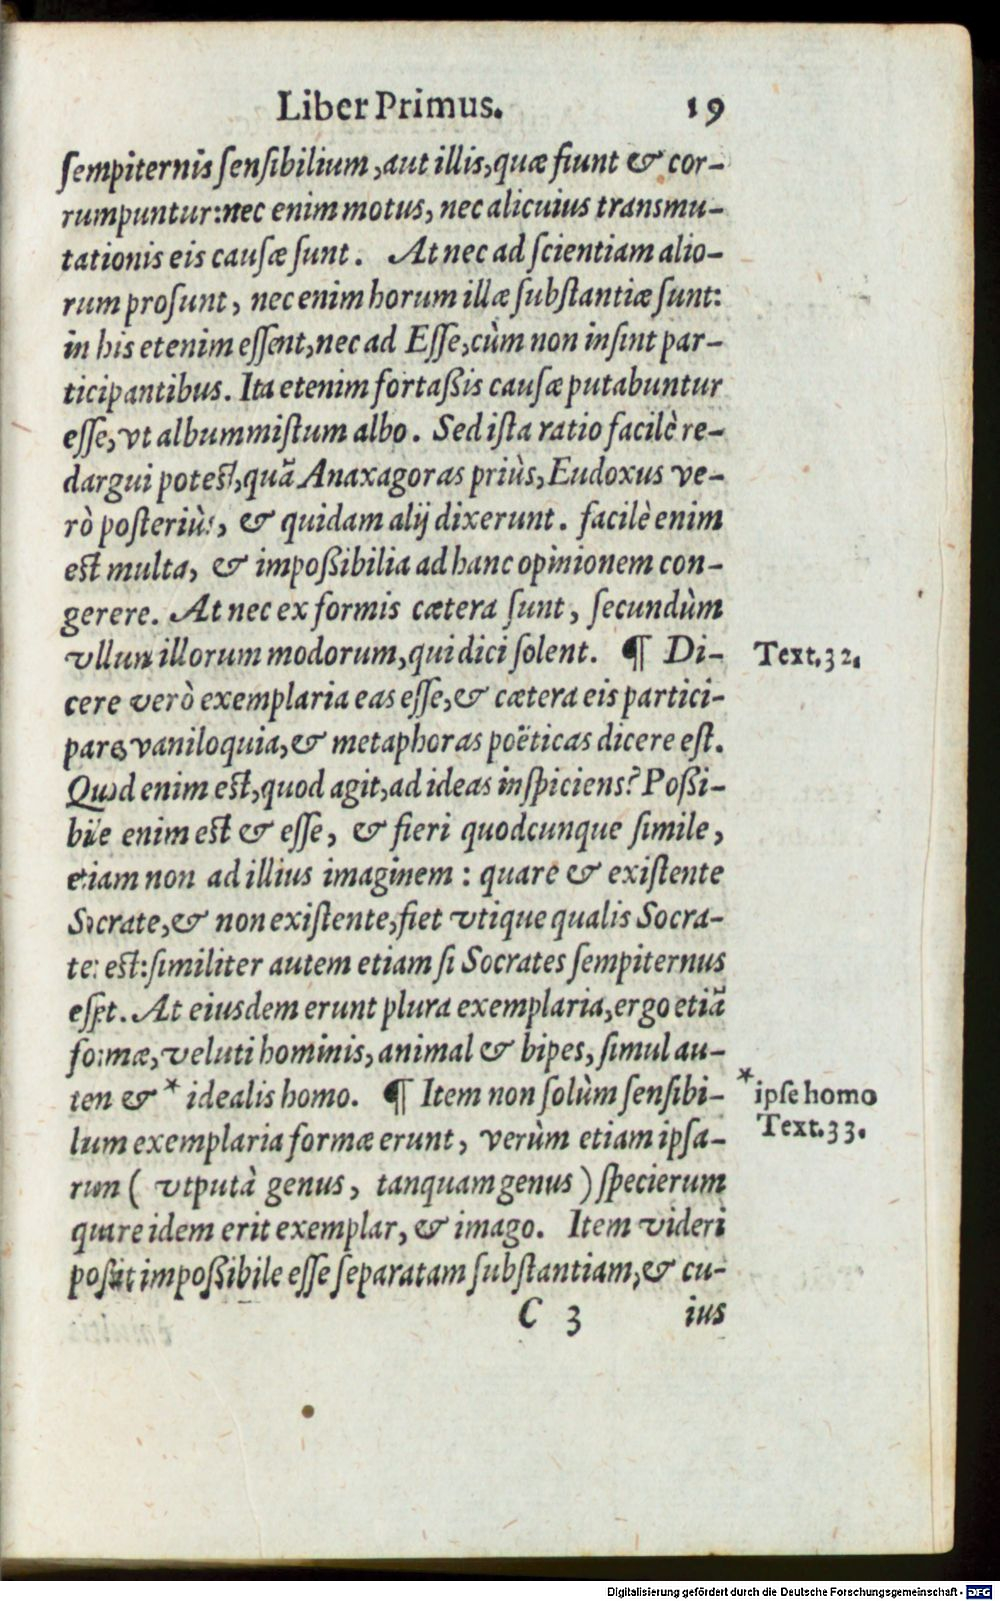 Liber Primus. 19
ſempiternis ſenſibilium, aut illis, quæ fiunt & cor-
rumpuntur: nec enim motus, nec alicuius transmu-
tationis eis cauſæ ſunt. At nec ad ſcientiam alio-
rum proſunt, nec enim horum illæ ſubſtantiæ ſunt:
in his etenim eſſent, nec ad Eſſe, cùm non inſint par-
ticipantibus. Ita etenim fortaßis cauſæ putabuntur
eſſe, vt album miſtum albo. Sed iſta ratio facilè re-
dargui poteſt, quã Anaxagoras priùs, Eudoxus ve-
rò poſteriùs, & quidam alij dixerunt. facilè enim
eſt multa, & impoßibilia ad hanc opinionem con-
gerere. At nec ex formis cætera ſunt, ſecundùm
vllum illorum modorum, qui dici ſolent. ¶ Di-
Text. 32.
cere verò exemplaria eas eſſe, & cætera eis partici-
pare, vaniloquia, & metaphoras poëticas dicere eſt.
Quod enim eſt, quod agit, ad ideas inſpiciens? Poßi-
bile enim eſt & eſſe, & fieri quodcunque ſimile,
etiam non ad illius imaginem: quare & exiſtente
Socrate, & non exiſtente, fiet vtique qualis Socra-
tes eſt: ſimiliter autem etiam ſi Socrates ſempiternus
eſſet. At eiusdem erunt plura exemplaria, ergo etiã
formæ, veluti hominis, animal & bipes, ſimul au-
tem & * idealis homo. ¶ Item non ſolùm ſenſibi-
* ipſe homo
Text. 33.
lium exemplaria formæ erunt, verùm etiam ipſa-
rum ( vtputà genus, tanquam genus ) ſpecierum
quare idem erit exemplar, & imago. Item videri
poßit impoßibile eſſe ſeparatam ſubſtantiam, & cu-
C 3 ius
Digitalisierung gefördert durch die Deutsche Forschungsgemeinschaft - DFG